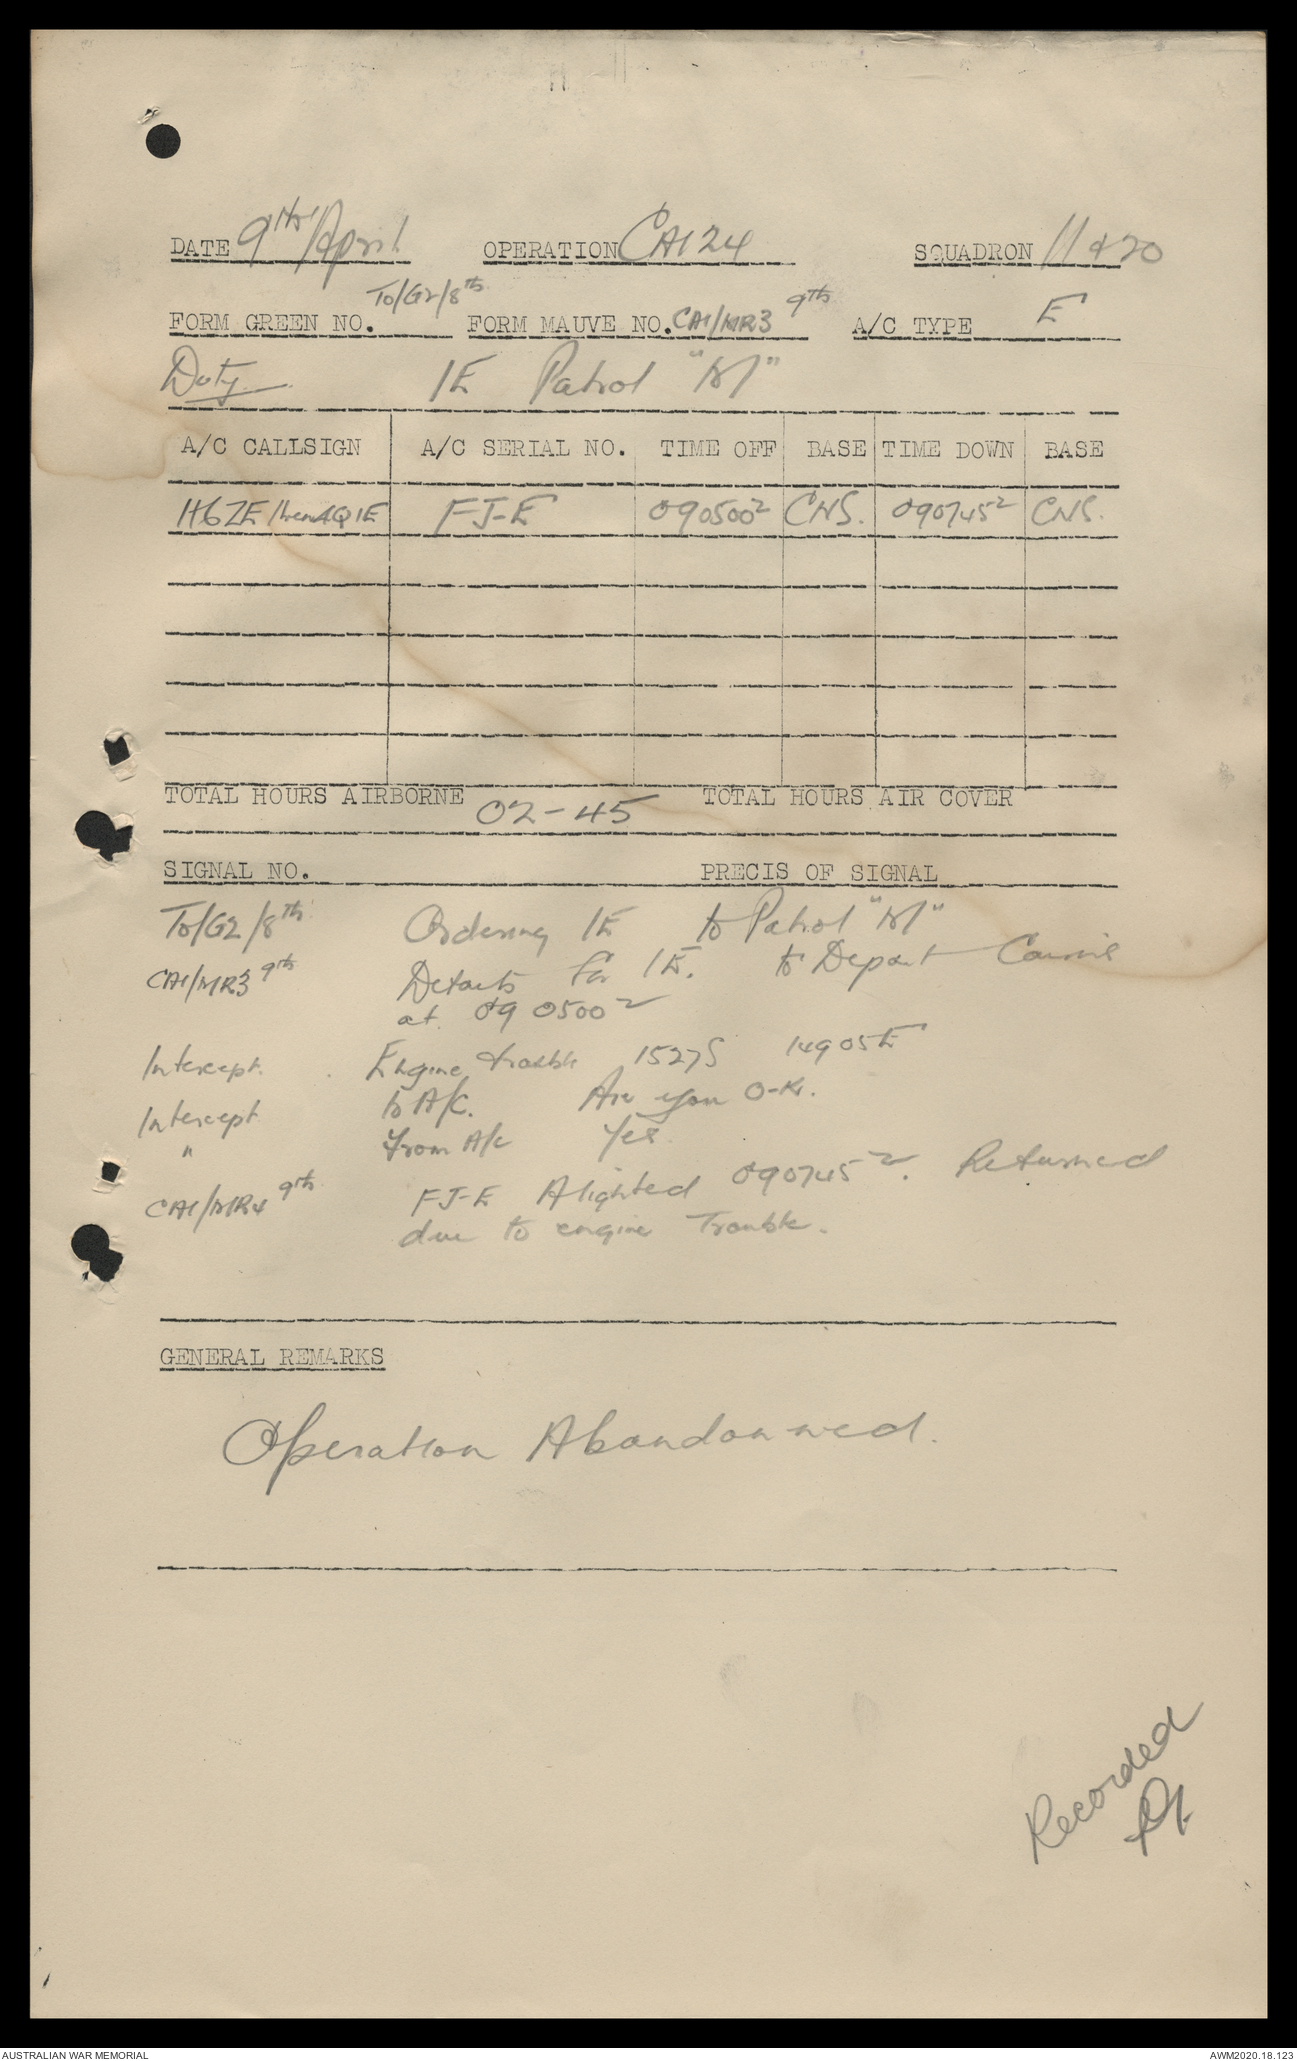 DATE 9th/April OPERATION CA124 SQUADRON 11 & 20
FORM GREEN NO. To/G2/8th FORM MAUVE NO. CA1/MR3 9th A/C TYPE E
Duty 1E Patrol "M"
A/C CALLSIGN A/C SERIAL NO. TIME OFF BASE TIME DOWN BASE
H6ZE/then4Q1E FJ-E 090500Z CNS. 090745Z CNS.
TOTAL HOURS AIRBORNE 02-45 TOTAL HOURS AIR COVER
SIGNAL NO. PRECIS OF SIGNAL
To/G2/8th Ordering 1E to Patrol "M"
CA1/MR3 9th Details for 1E. to Depart Cairns
at 090500Z
Intercept. Engine trouble 1527S 14905E
Intercept to A/C. Are you O-K.
" From A/c Yes
CA1/MR4 9th FJ-E Alighted 090745Z. Returned
due to engine Trouble.
GENERAL REMARKS
Operation Abandonned.
Recorded
AUSTRALIAN WAR MEMORIAL AWM2020.18.123